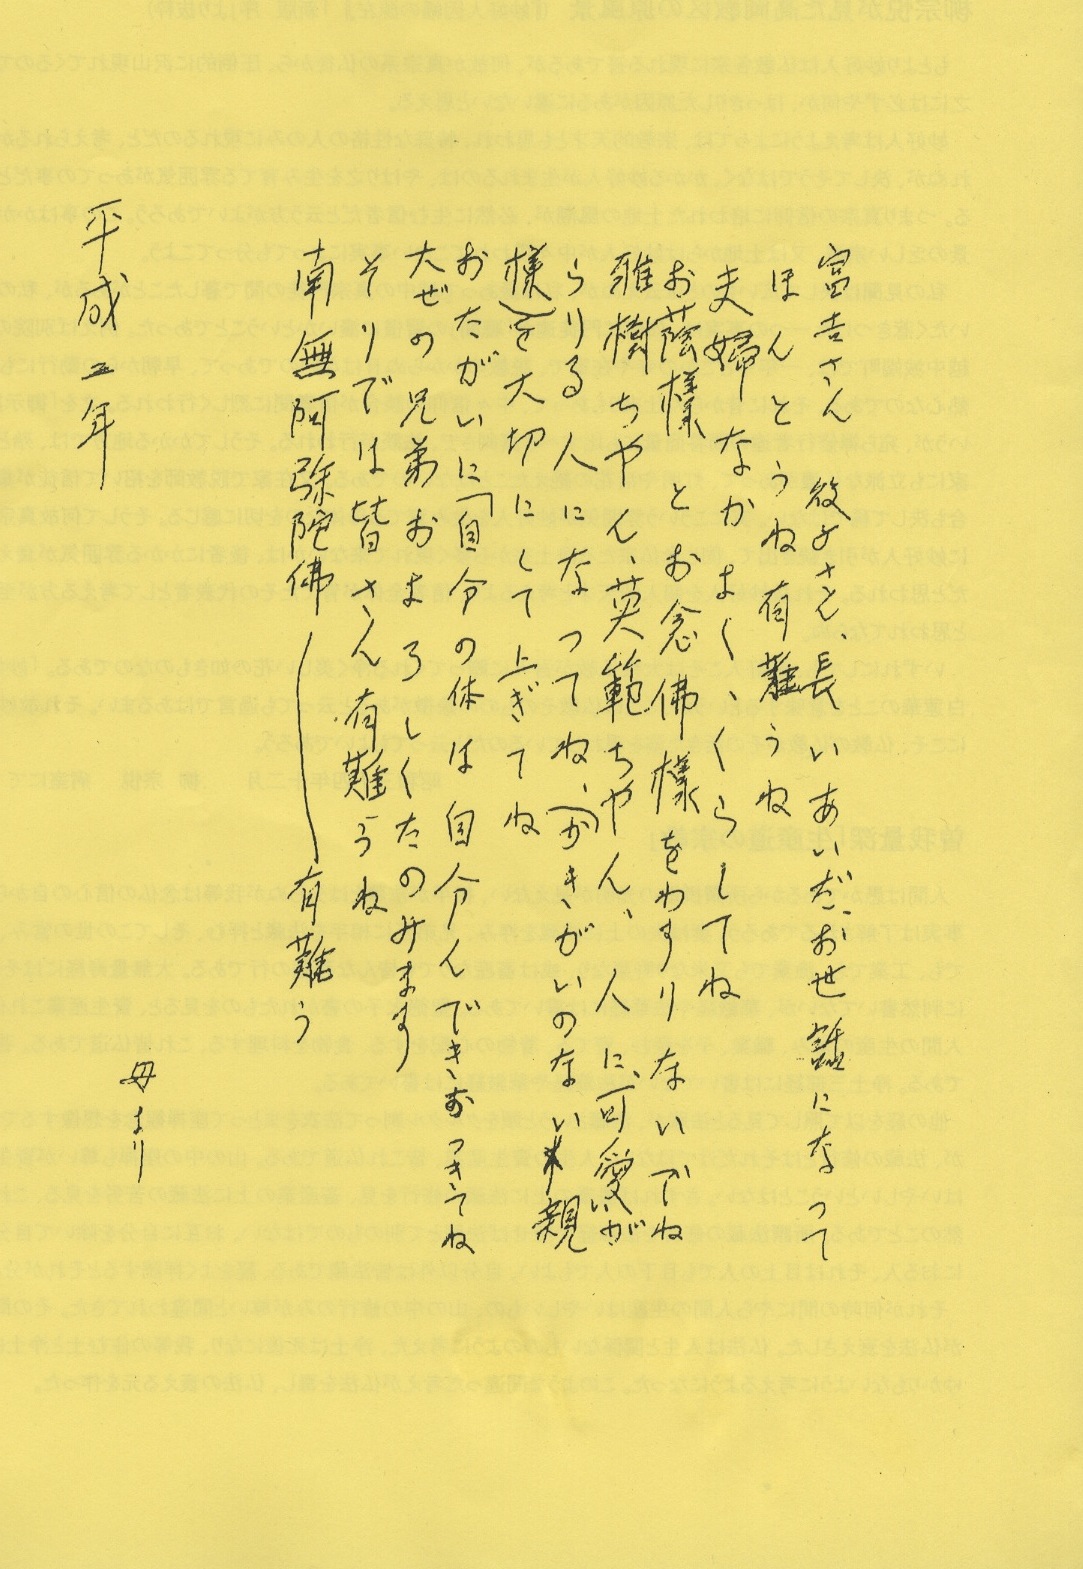 富吉さん 敏子さん、長いあいだ、お世話になって
ほんとうね有難うね
夫婦なかよく、くらしてね
お蔭様とお念佛様をわすりないでね
雅樹ちやん、英範ちやん、人に、可愛いが
らりる人になってね、(かきがいのない親
様)を大切にして上ぎてね
おたがいに「自今の体は自今んできおつきてね
大ぜの兄弟およろしくたのみます
そりでは皆さん有難うね
南無阿弥陀佛―有難う
母より
平成二年